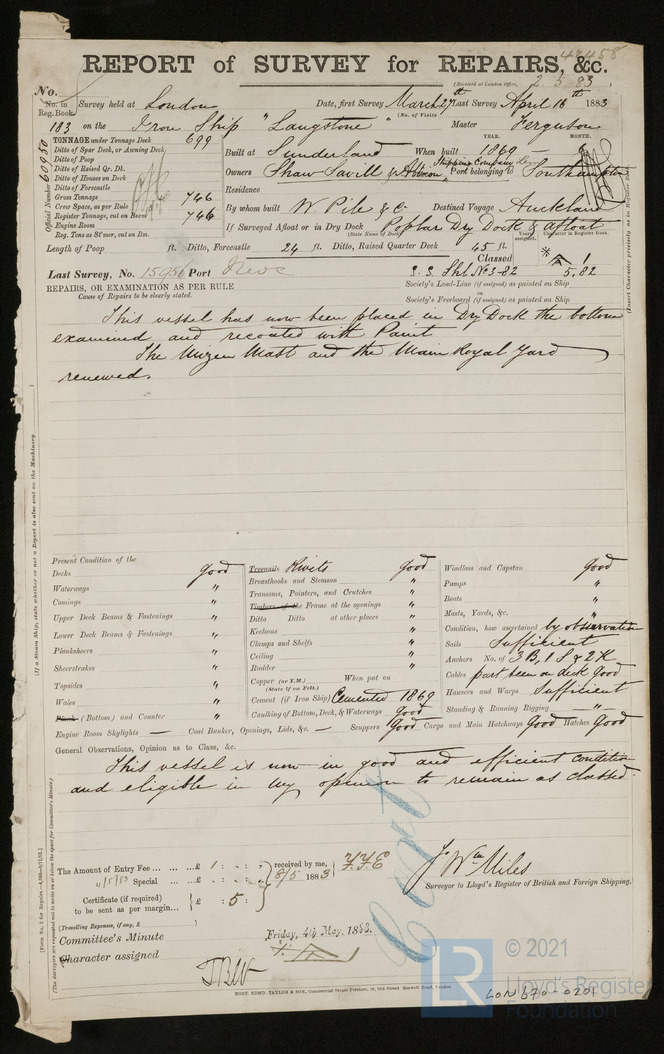 47458
REPORT of SURVEY for REPAIRS, &c.
(Received at London Office, 2.5.83)
No.
No. in Reg. Book. Survey held at London Date, first Survey March 27th Last Survey April 16th 1883
(No. of Visits)
183 on the Iron Ship "Langstone" Master Ferguson
TONNAGE under Tonnage Deck 699
Ditto of Spar Deck, or Awning Deck
Ditto of Poop
Ditto of Raised Qr. Dk.
Ditto of Houses on Deck
Ditto of Forecastle
Gross Tonnage 746
Crew Space, as per Rule
Register Tonnage, cut on Beam 746
Engine Room
Reg. Tons as St'mer, cut on Bm.
Official Number 60950
YEAR. MONTH.
Built at Sunderland When built 1869 6
Owners Shaw Savill & Albion Shipping Company Port belonging to Southampton
Residence
By whom built W. Pile & Co Destined Voyage Auckland
If Surveyed Afloat or in Dry Dock Poplar Dry Dock & Afloat
(State Name of Dock)
Years assigned. Character in Register Book.
Length of Poop ft. Ditto, Forecastle 24 ft. Ditto, Raised Quarter Deck 45 ft.
Classed
Last Survey, No. 15956 Port S.S. Shl No 3-82 A 1 5.82
REPAIRS, OR EXAMINATION AS PER RULE
Cause of Repairs to be clearly stated.
Society's Load-Line (if assigned) as printed on Ship
or
Society's Freeboard (if assigned) as printed on Ship
This vessel has now been placed in Dry Dock the bottom
examined and recoated with Paint
The Mizen Mast and the Main Royal Yard
renewed.
(If a Steam Ship, state whether or not a Report is also sent on the Machinery
Present Condition of the
Decks good
Waterways "
Comings "
Upper Deck Beams & Fastenings "
Lower Deck Beams & Fastenings "
Planksheers "
Sheerstrakes "
Topsides "
Wales "
Plank (Bottom) and Counter "
Treenails Rivets good
Breasthooks and Stemson "
Transons, Pointers, and Crutches "
Timbers of the Frame at the openings "
Ditto Ditto at other places "
Keelsons "
Clamps and Shelfs "
Ceiling "
Rudder "
Copper (or Y.M.) When put on
(State if on Felt.)
Cement (if Iron Ship) Cemented 1869
Caulking of Bottom, Deck, & Waterways Good
Windlass and Capstan good
Pumps "
Boats "
Masts, Yards, &c. "
Condition, how ascertained by observation
Sails Sufficient
Anchors No. of 3 B, 1 S & 2 K
Cables part been on deck Good
Hawsers and Warps Sufficient
Standing & Running Rigging "
Engine Room Skylights — Coal Bunker, Openings, Lids, &c. — Scuppers Good Cargo and Main Hatchways Good Hatches Good
General Observations, Opinion as to Class, &c.
This vessel is now in good and efficient condition
and eligible in my opinion to remain as classed.
Cert
The Amount of Entry Fee £ 1 : - : -
Special £ : :
Certificate (if required) to be sent as per margin £ : 5 :
received by me,
8/5 1883
(Travelling Expenses, if any, £ )
Jo Wm Miles
Surveyor to Lloyd's Register of British and Foreign Shipping.
Committee's Minute
Friday, 4th May, 1883.
Character assigned
ROBT. EDMD. TAYLOR & SON, Commercial Steam Printers, 19, Old Street Goswell Road, London.
LR
© 2021
Lloyd's Register
Foundation
LON 670-0201